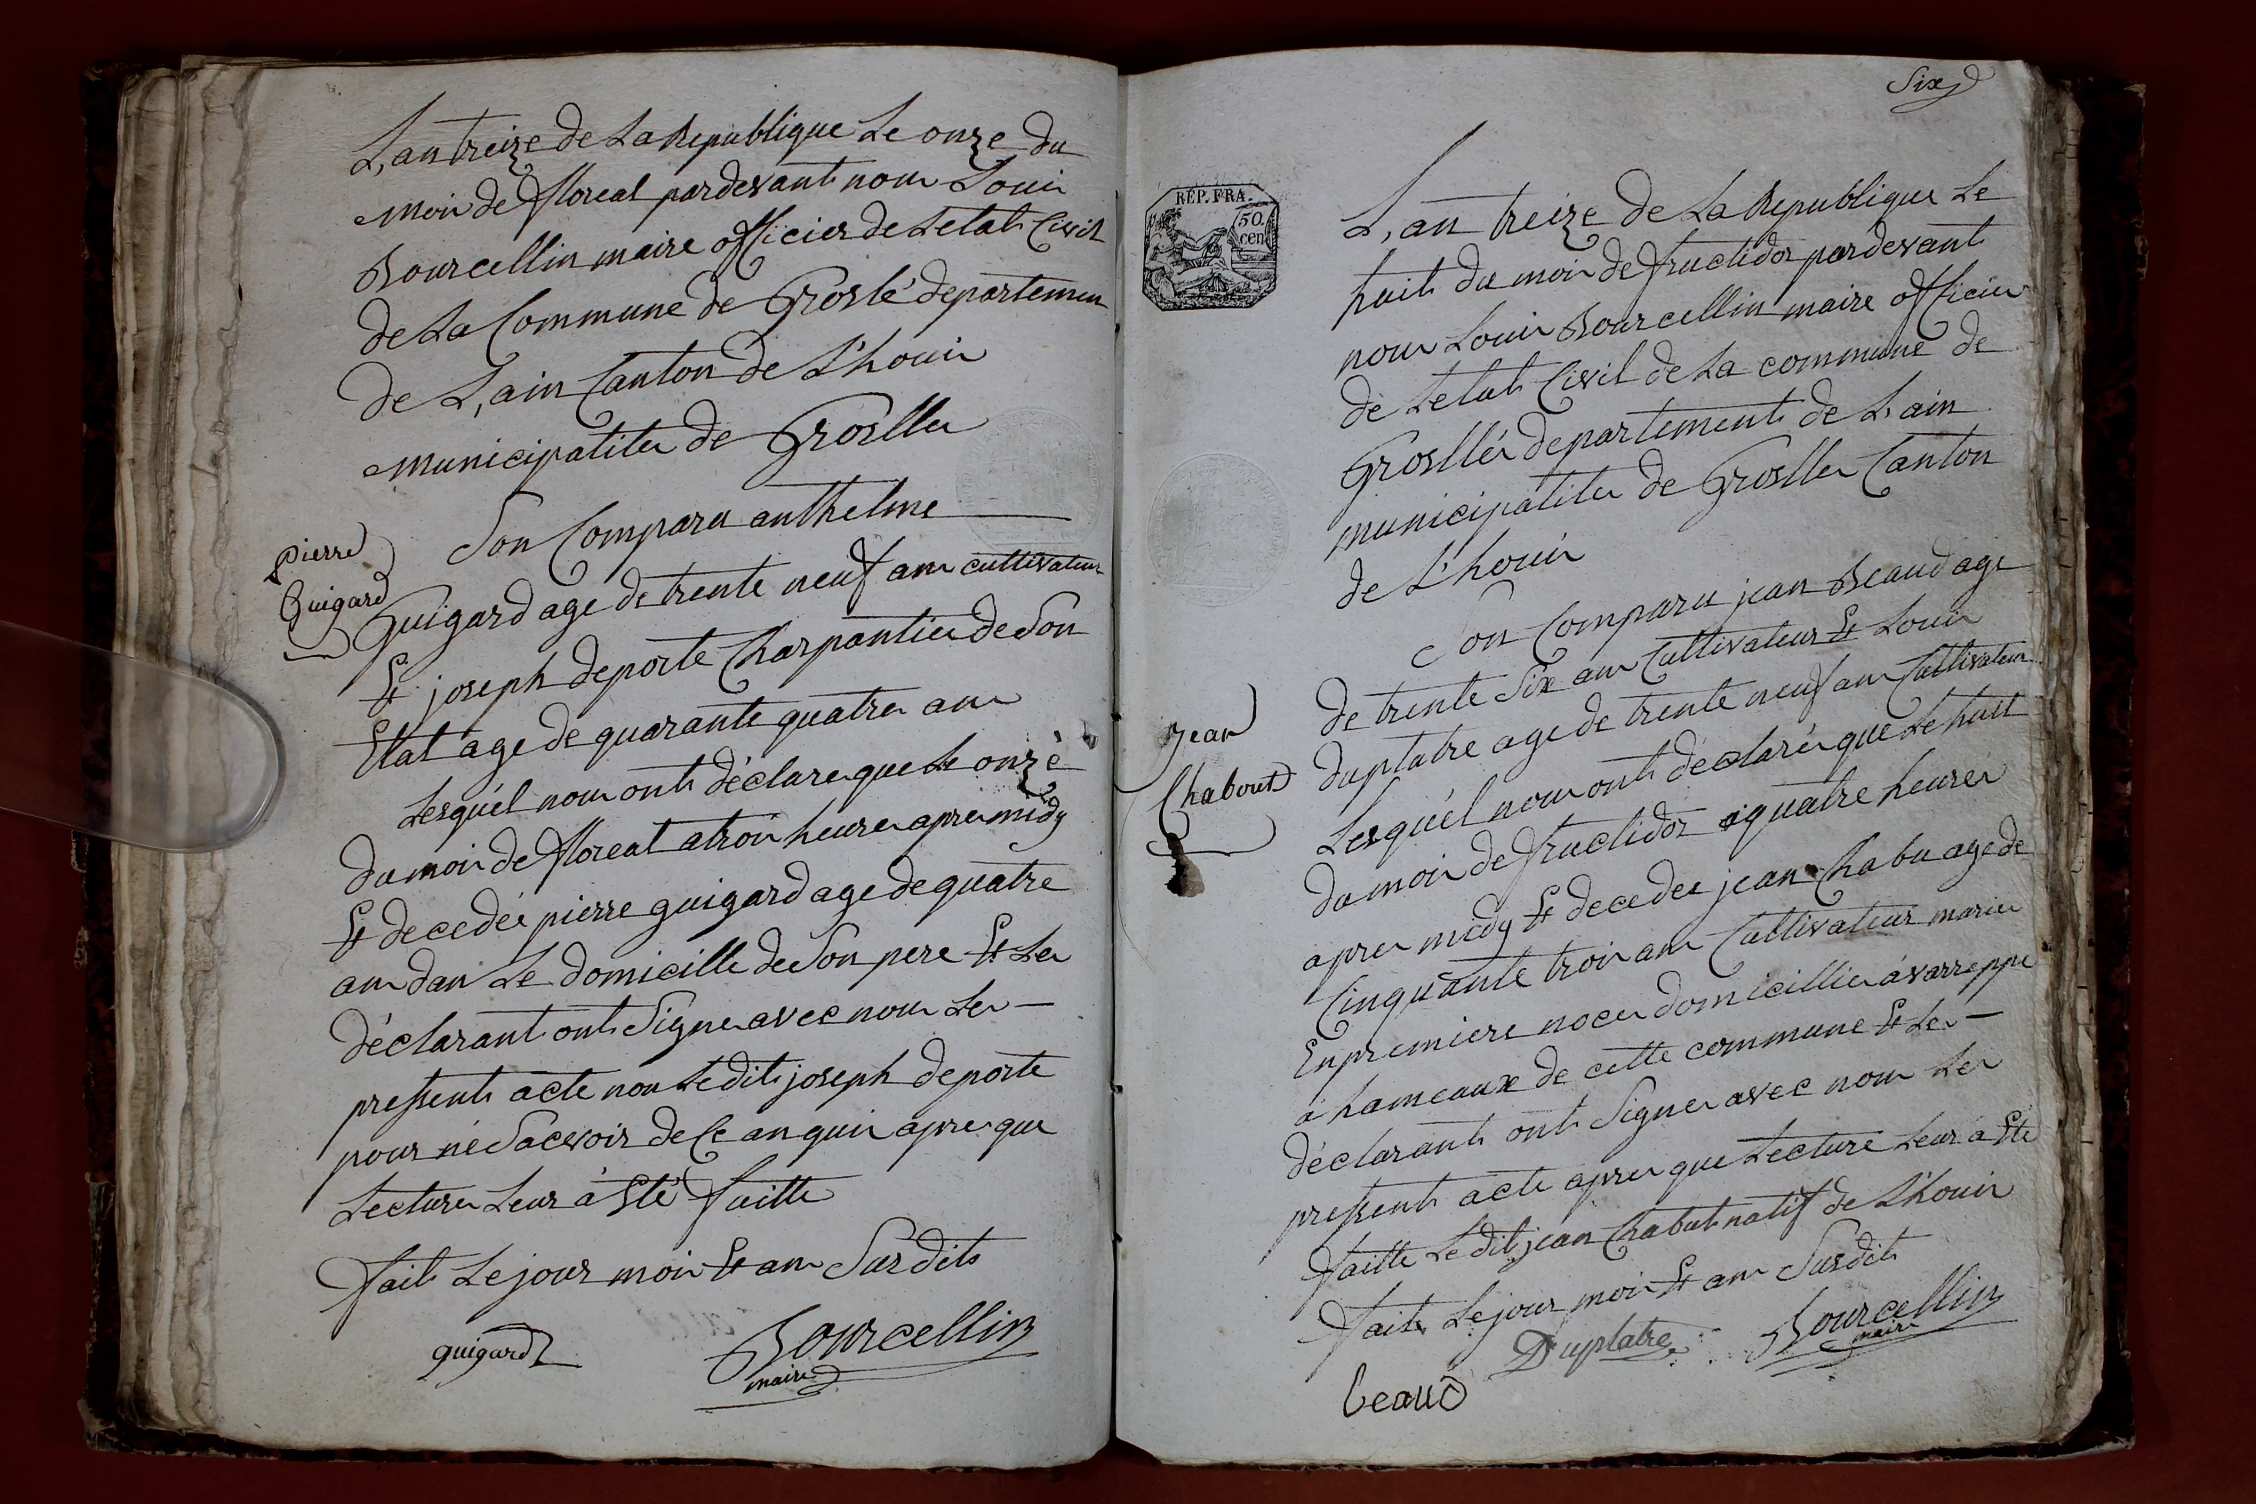 L,an treize de La Republique Le onze du
mois de floreal pardevant nous Louis
Bourcellin maire officier de Letat Civil
de La Commune de Groslé departemen
de L,ain Canton de L'houis
municipalitée de Groslleé
Son Comparu anthelme
pierre
Guigard
Guigard age de trente neuf ans cultivateur
Et joseph deporte Charpantier de Son
Etat age de quarante quatre ans
Lesquél nous ont déclare que Le onze
du mois de floreal a trois heures apres midy
Et decedée pierre guigard age de quatre
ans dans Le domicille de Son pere Et Les
déclarant ont Signes avec nous Les
pressent acte non Ledit joseph deporte
pour né Sacvoir de Ce anquis apres que
Lectures Leur à Eté faitte
fait Le jour mois Et ans Surdits
guigard
Bourcellin
maire
Six
REP. FRA.
50.
cen
L,an treize de La Republique Le
huit du mois de fructidor pardevant
nous Louis Bourcellin maire officier
de Letat Civil de La commune de
Groslleé departement de L,ain
municipalitée de Groslleé Canton
de L'houis
Son Comparu jean Beaud age
de trente Six ans Cultivateur Et Louis
duplatre age de trente neuf ans Cultivateur
Jean
Chabout
Lesquél nous ont déclarés que Le huit
du mois de fructidor a quatre heures
apres midy Et decedée jean Chabu age de
Cinquante trois ans Cultivateur mariée
En premiere noces domicilliée à varreppe
à hameaux de cette commune Et Les
déclarant ont Signes avec nous Les
pressent acte apres que Lecture Leur à Eté
faitte Le dit jean Chabut natif de L'houis
fait Le jour mois Et ans Surdit
Duplatre
Bourcellin
maire
beaud